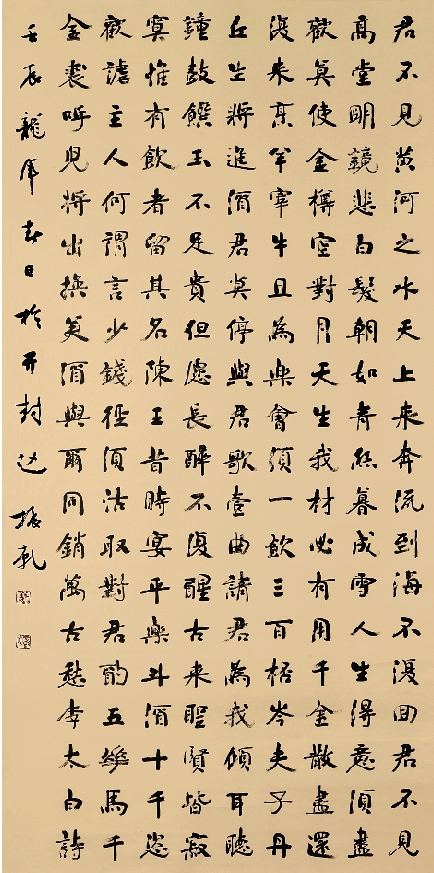 君不見黃河之水天上来奔流到海不復回君不見
高堂明鏡悲白髮朝如青絲暮成雪人生得意須盡
歡莫使金樽空對月天生我材必有用千金散盡還
復来烹羊宰牛且為樂會須一飲三百杯岑夫子丹
丘生將進酒君莫停與君歌壹曲請君為我傾耳聽
鐘鼓饌玉不足貴但願長醉不復醒古来聖賢皆寂
寞惟有飲者留其名陳王昔時宴平樂斗酒十千恣
歡謔主人何謂言少錢徑須沽取對君酌五馬千
金裘呼兒將出換美酒與爾同銷萬古愁李太白詩
壬辰龍年春日於开封达振